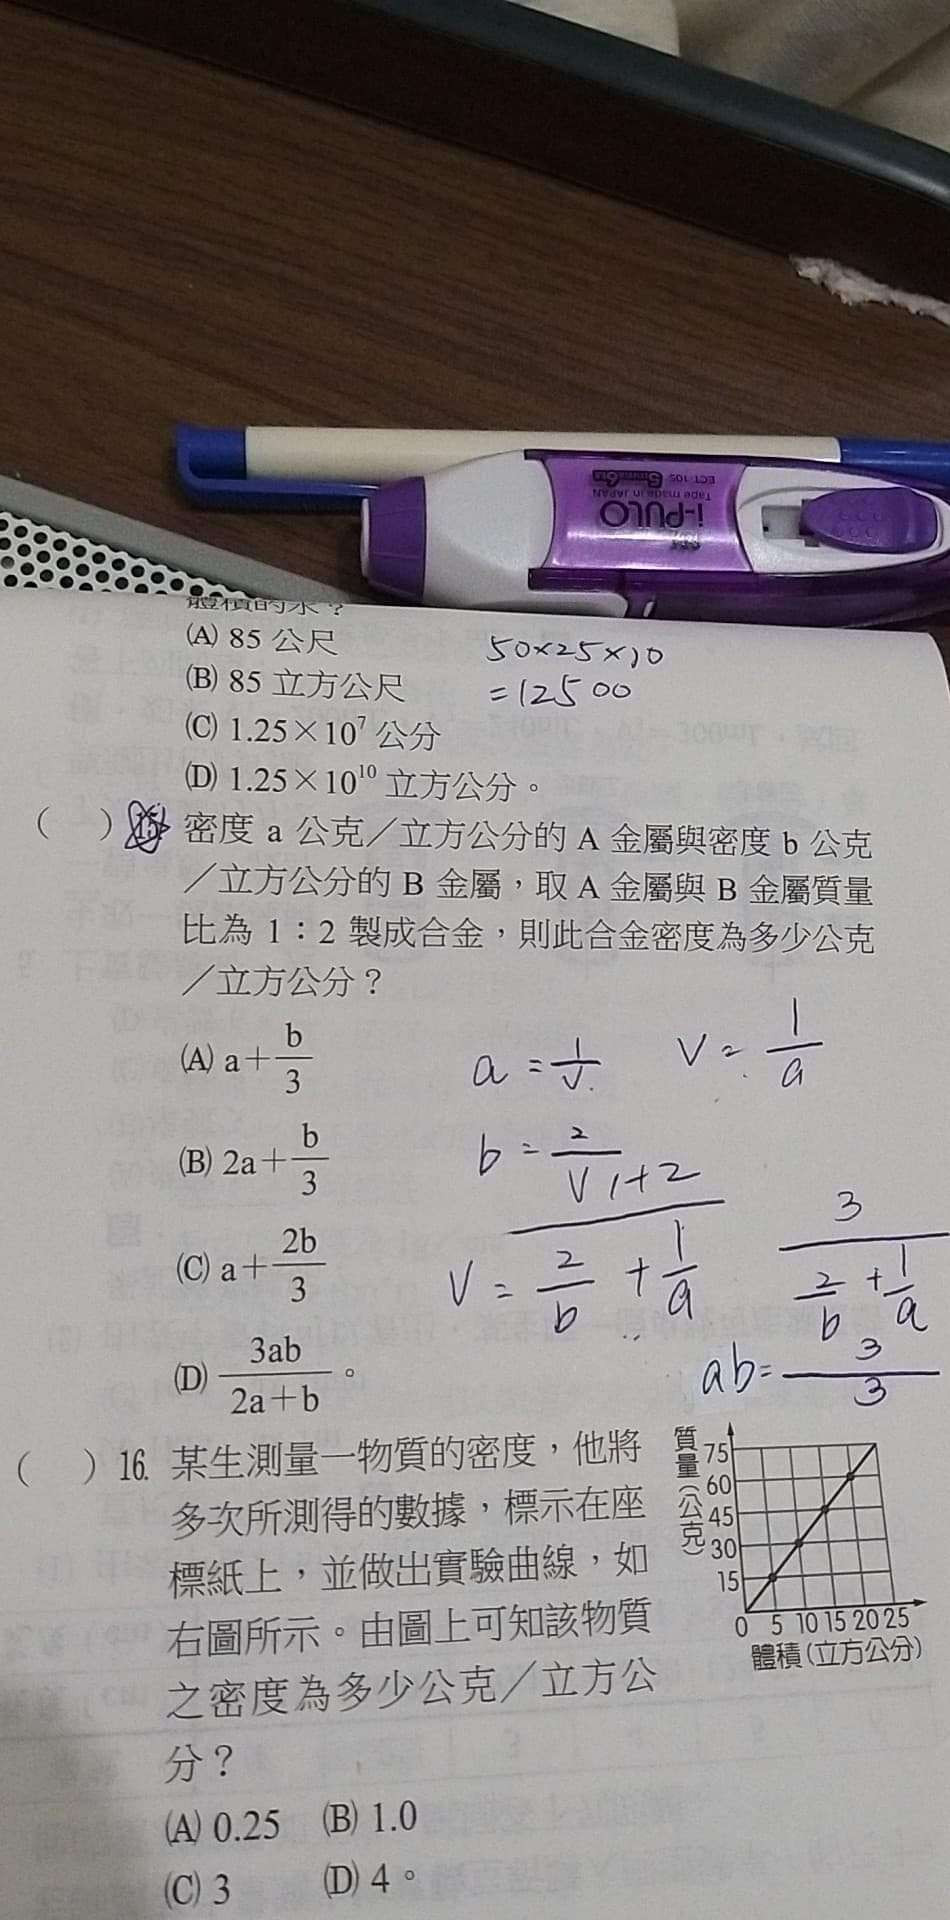 i-PULO
Tape made in JAPAN
ECT-105 5mmx6m
體積的水？
(A) 85 公尺
50×25×10
(B) 85 立方公尺
=12500
(C) 1.25×10⁷ 公分
(D) 1.25×10¹⁰ 立方公分。
( ) 15. 密度 a 公克／立方公分的 A 金屬與密度 b 公克
／立方公分的 B 金屬，取 A 金屬與 B 金屬質量
比為 1：2 製成合金，則此合金密度為多少公克
／立方公分？
(A) a+b/3
a=1/V
V=1/a
(B) 2a+b/3
b=2/V
1+2
(C) a+2b/3
V=2/b+1/a
3/(2/b+1/a)
(D) 3ab/(2a+b)。
ab=3/3
( ) 16. 某生測量一物質的密度，他將
多次所測得的數據，標示在座
標紙上，並做出實驗曲線，如
右圖所示。由圖上可知該物質
之密度為多少公克／立方公
分？
質量(公克)
75
60
45
30
15
0 5 10 15 20 25
體積(立方公分)
(A) 0.25 (B) 1.0
(C) 3 (D) 4。